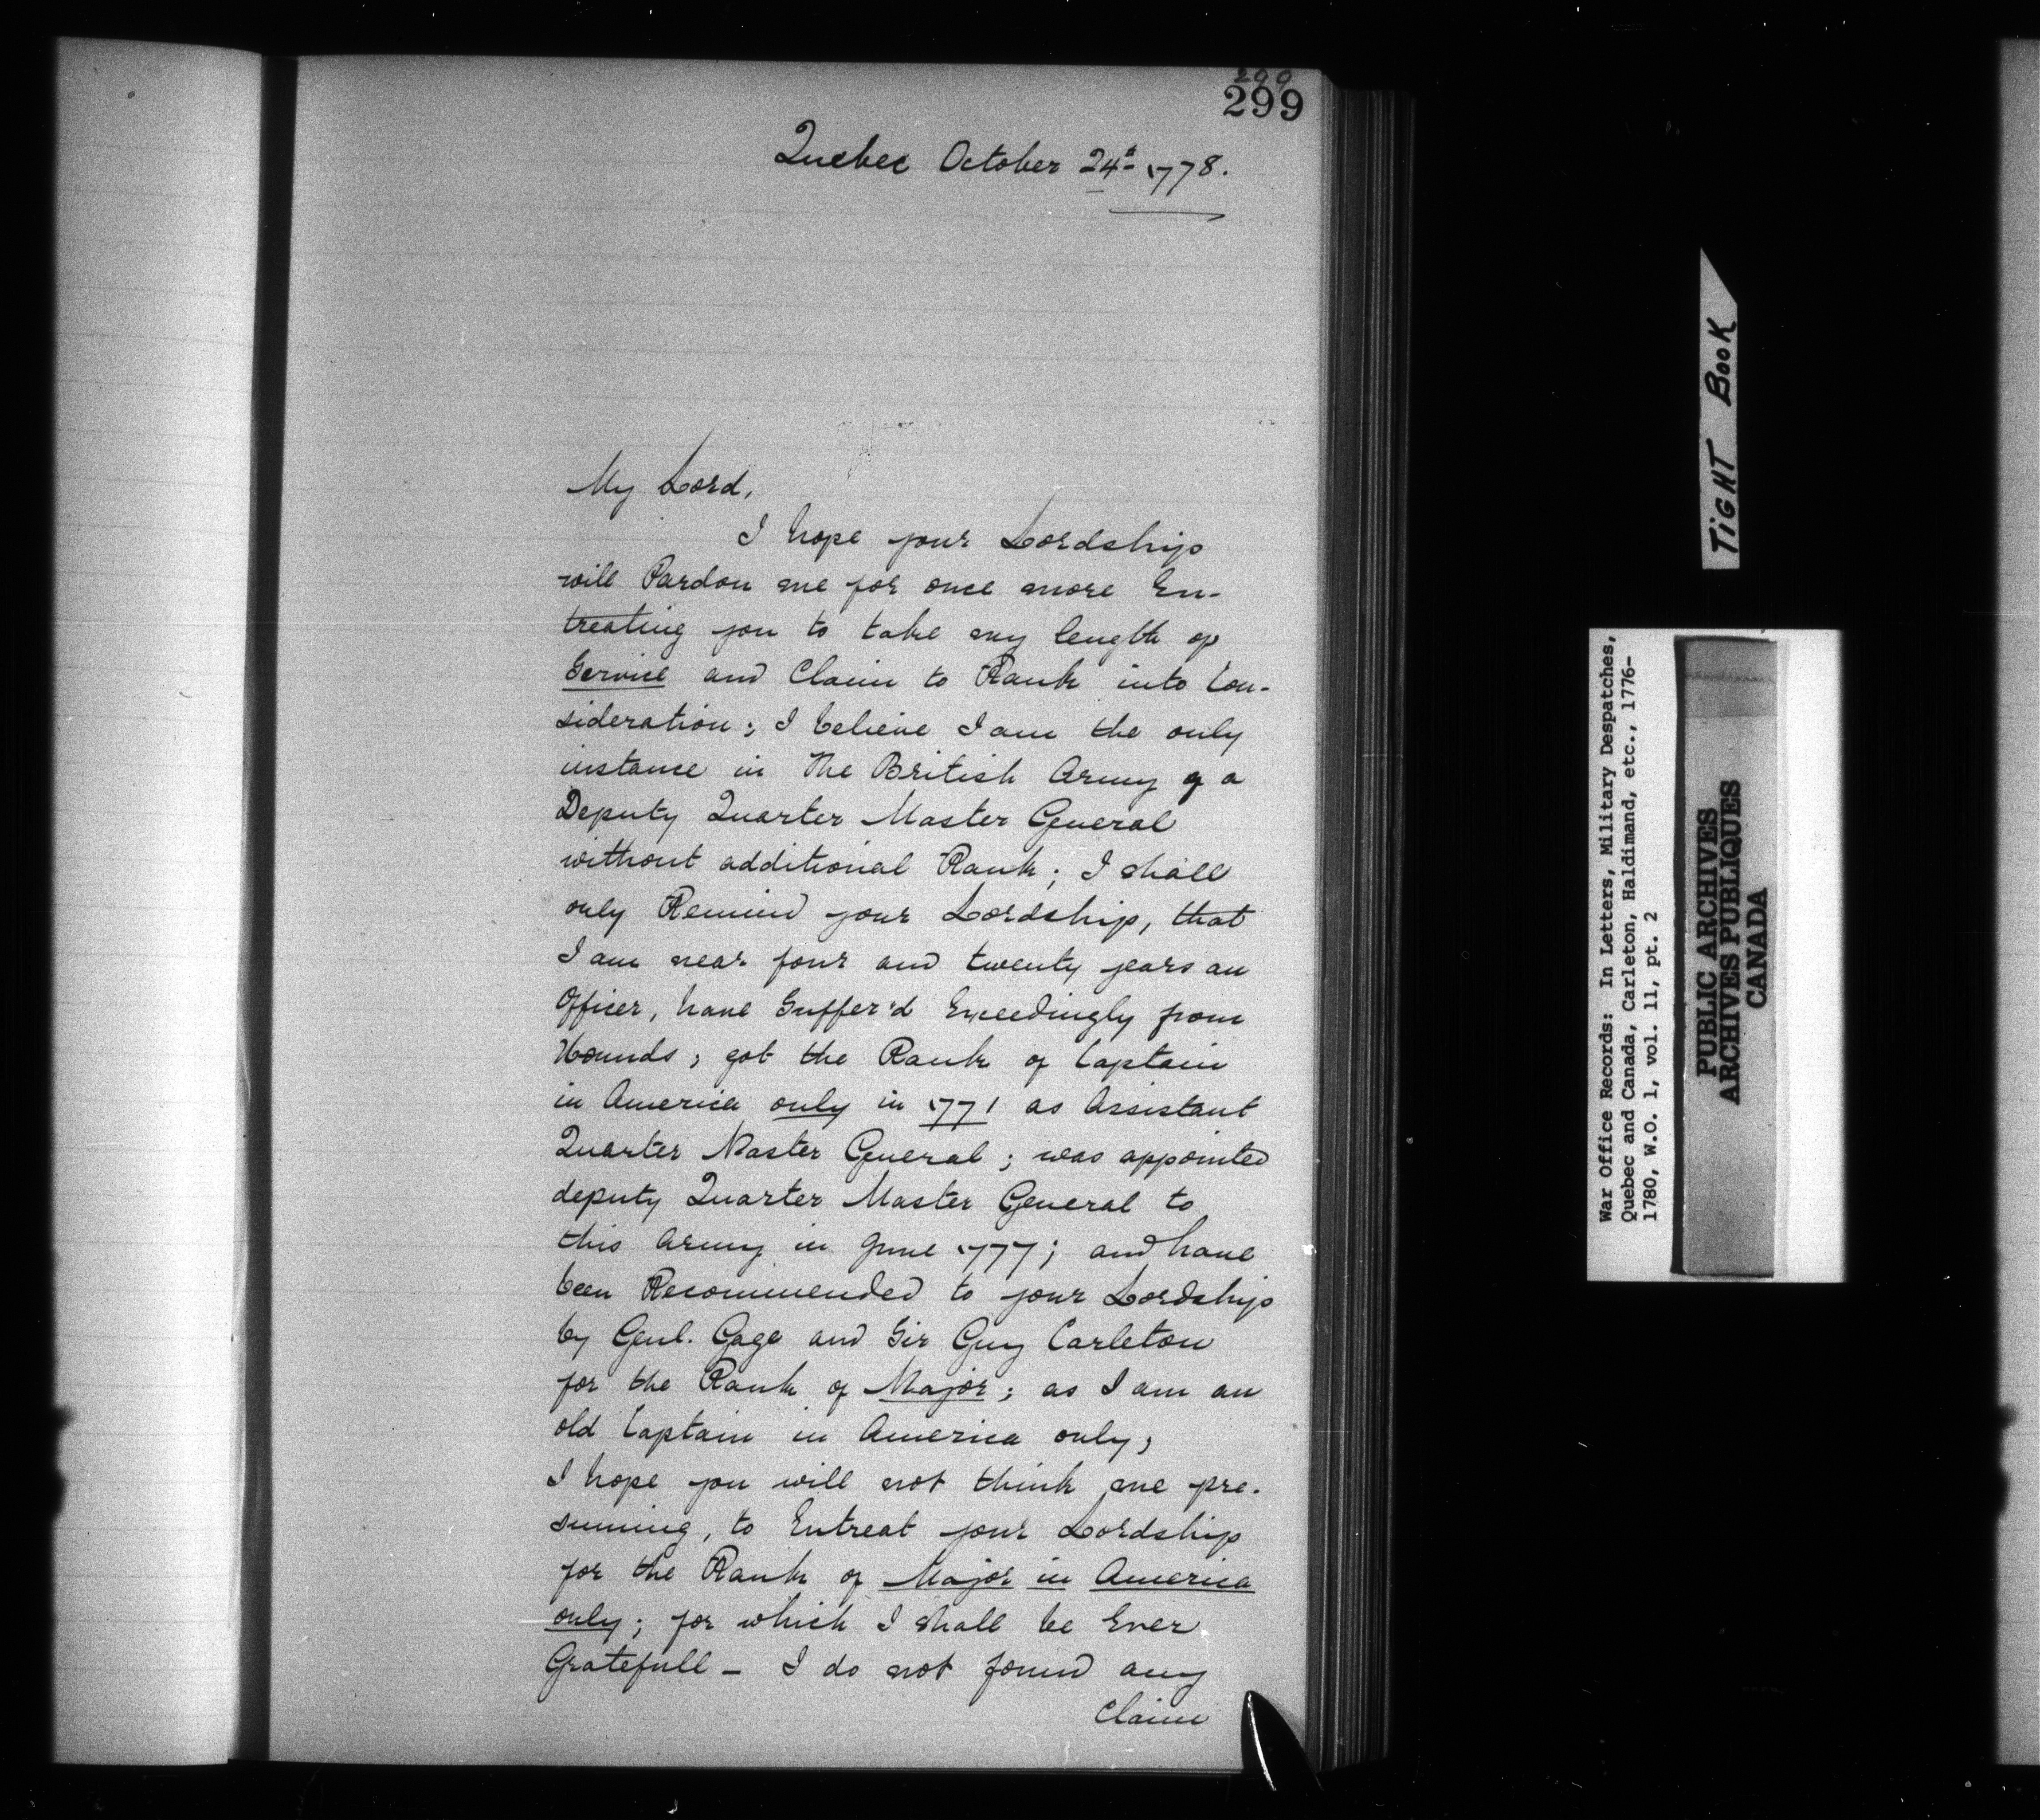 290
299
Quebec October 24th 1778.
My Lord,
I hope your Lordship
will Pardon me for once more En-
treating you to take my length of
Service and Claim to Rank into Con-
sideration; I believe I am the only
instance in The British Army of a
Deputy Quarter Master General
without additional Rank; I shall
only Remind your Lordship, that
I am near four and twenty years an
Officer, have Suffer'd Exceedingly from
Wounds; got the Rank of Captain
in America only in 1771 as Assistant
Quarter Master General; was appointed
deputy Quarter Master General to
this Army in June 1777; and have
been Recommended to your Lordship
by Genl. Gage and Sir Guy Carleton
for the Rank of Major; as I am an
old Captain in America only,
I hope you will not think me pre-
suming, to Entreat your Lordship
for the Rank of Major in America
only; for which I shall be Ever
Gratefull - I do not found any
Claim
TIGHT BOOK
War Office Records: In Letters, Military Despatches,
Quebec and Canada, Carleton, Haldimand, etc., 1776-
1780, W.O. 1, vol. 11, pt. 2
PUBLIC ARCHIVES
ARCHIVES PUBLIQUES
CANADA